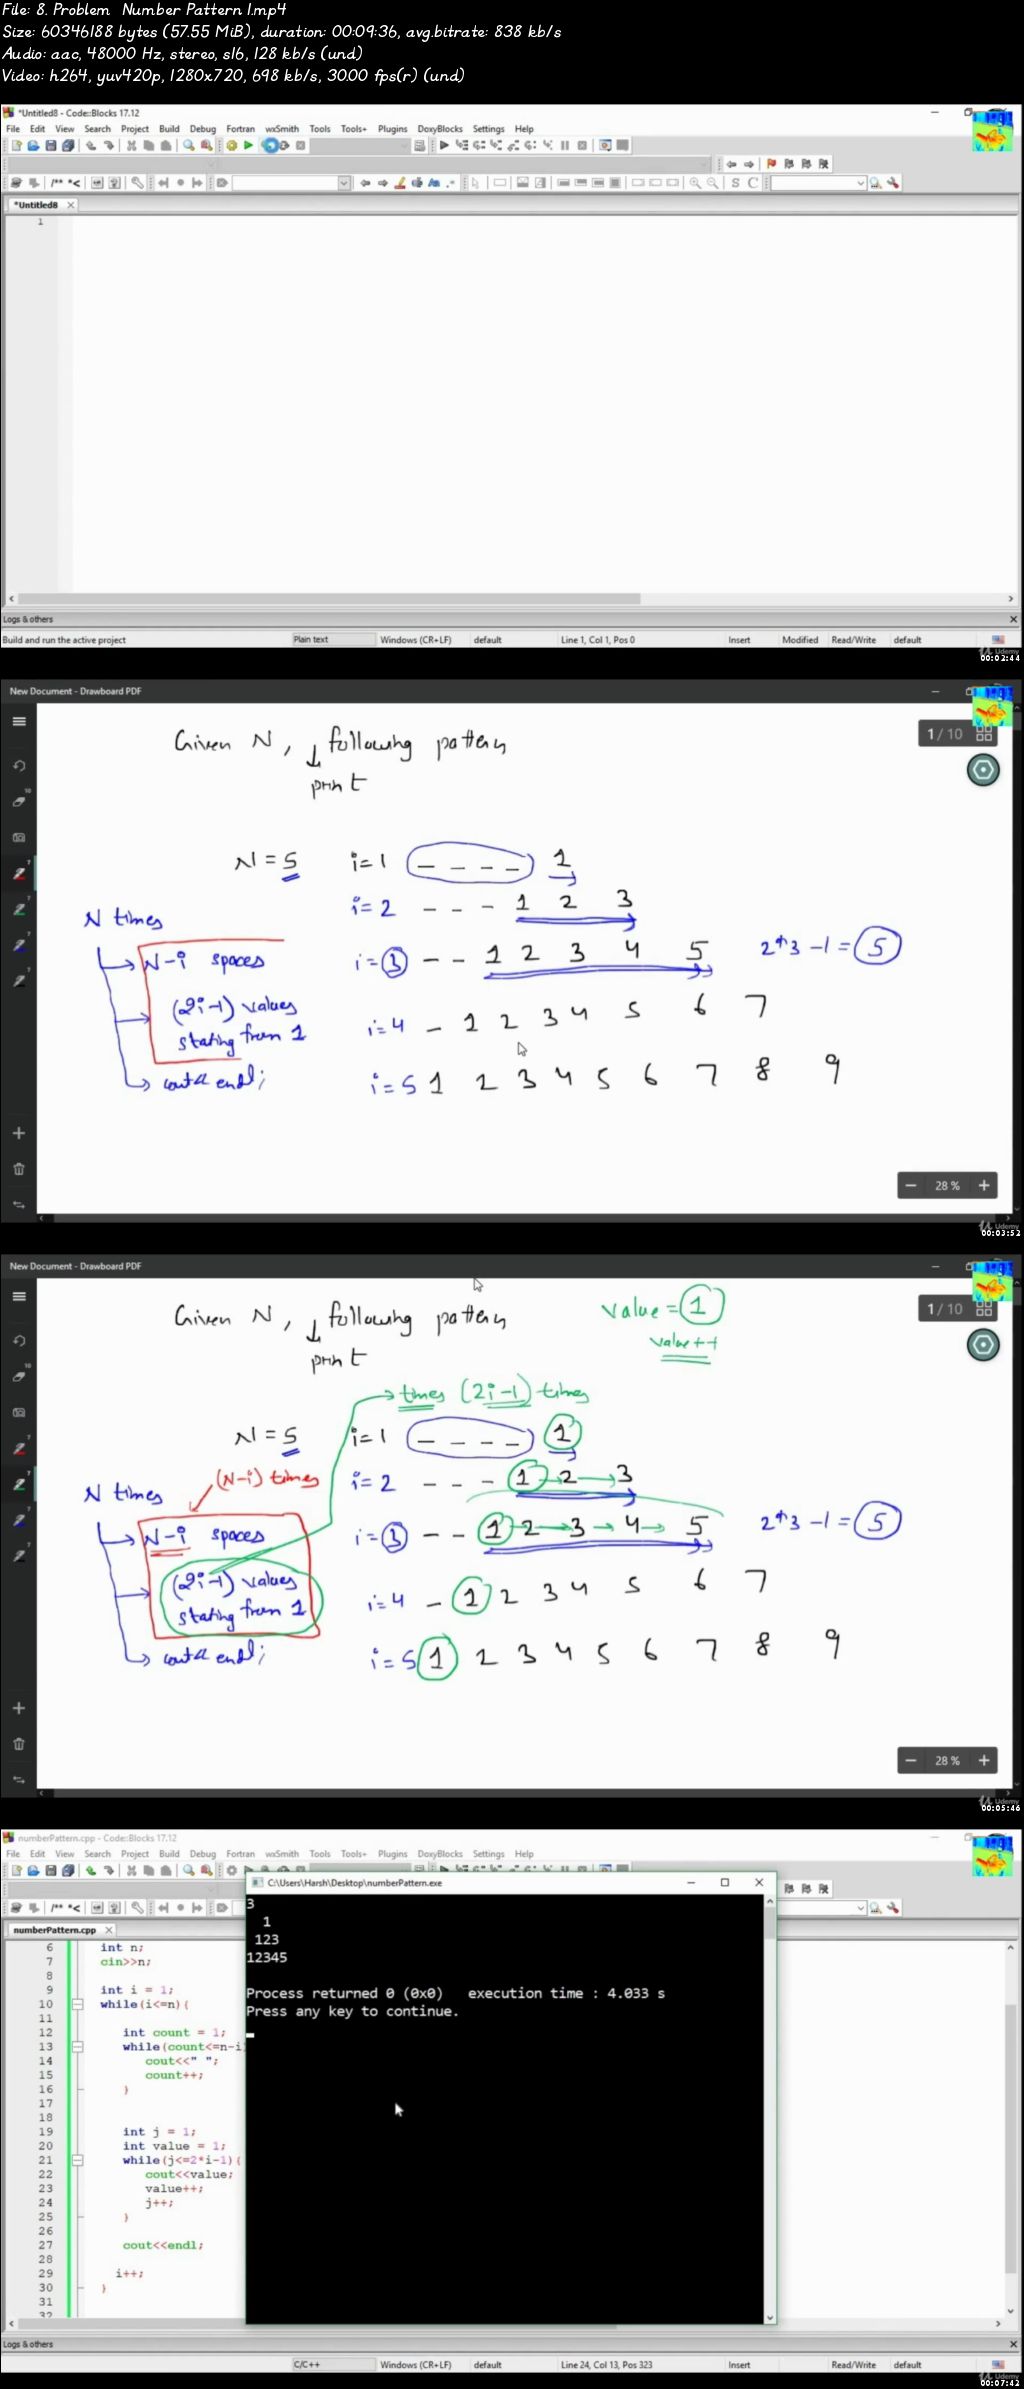 File: 8. Problem  Number Pattern 1.mp4
Size: 60346188 bytes (57.55 MiB), duration: 00:09:36, avg.bitrate: 838 kb/s
Audio: aac, 48000 Hz, stereo, s16, 128 kb/s (und)
Video: h264, yuv420p, 1280x720, 698 kb/s, 30.00 fps(r) (und)
*Untitled8 - Code::Blocks 17.12
File Edit View Search Project Build Debug Fortran wxSmith Tools Tools+ Plugins DoxyBlocks Settings Help
*Untitled8
1
Logs & others
Build and run the active project Plain text Windows (CR+LF) default Line 1, Col 1, Pos 0 Insert Modified Read/Write default
Udemy
00:02:44
New Document - Drawboard PDF
1 / 10
Given N, following pattern
print
N = 5 i=1 _ _ _ _ 1
i=2 - - - 1 2 3
N times
N-i spaces i=3 - - 1 2 3 4 5 2*3-1=5
(2i-1) values
stating from 1 i=4 - 1 2 3 4 5 6 7
cout<< endl; i=5 1 2 3 4 5 6 7 8 9
28 %
Udemy
00:03:52
New Document - Drawboard PDF
1 / 10
Given N, following pattern value = 1
value++
print
times (2i-1) times
N = 5 i=1 _ _ _ _ 1
(N-i) times i=2 - - - 1 2 3
N times
N-i spaces i=3 - - 1 2 3 4 5 2*3-1=5
(2i-1) values
stating from 1 i=4 - 1 2 3 4 5 6 7
cout<< endl; i=5 1 2 3 4 5 6 7 8 9
28 %
Udemy
00:05:46
numberPattern.cpp - Code::Blocks 17.12
File Edit View Search Project Build Debug Fortran wxSmith Tools Tools+ Plugins DoxyBlocks Settings Help
C:\Users\Harsh\Desktop\numberPattern.exe
3
1
123
12345
Process returned 0 (0x0)   execution time : 4.033 s
Press any key to continue.
numberPattern.cpp
6 int n;
7 cin>>n;
8
9 int i = 1;
10 while(i<=n){
11
12 int count = 1;
13 while(count<=n-i
14 cout<<" ";
15 count++;
16 }
17
18
19 int j = 1;
20 int value = 1;
21 while(j<=2*i-1){
22 cout<<value;
23 value++;
24 j++;
25 }
26
27 cout<<endl;
28
29 i++;
30 }
31
32
Logs & others
C/C++ Windows (CR+LF) default Line 24, Col 13, Pos 323 Insert Read/Write default
Udemy
00:07:42